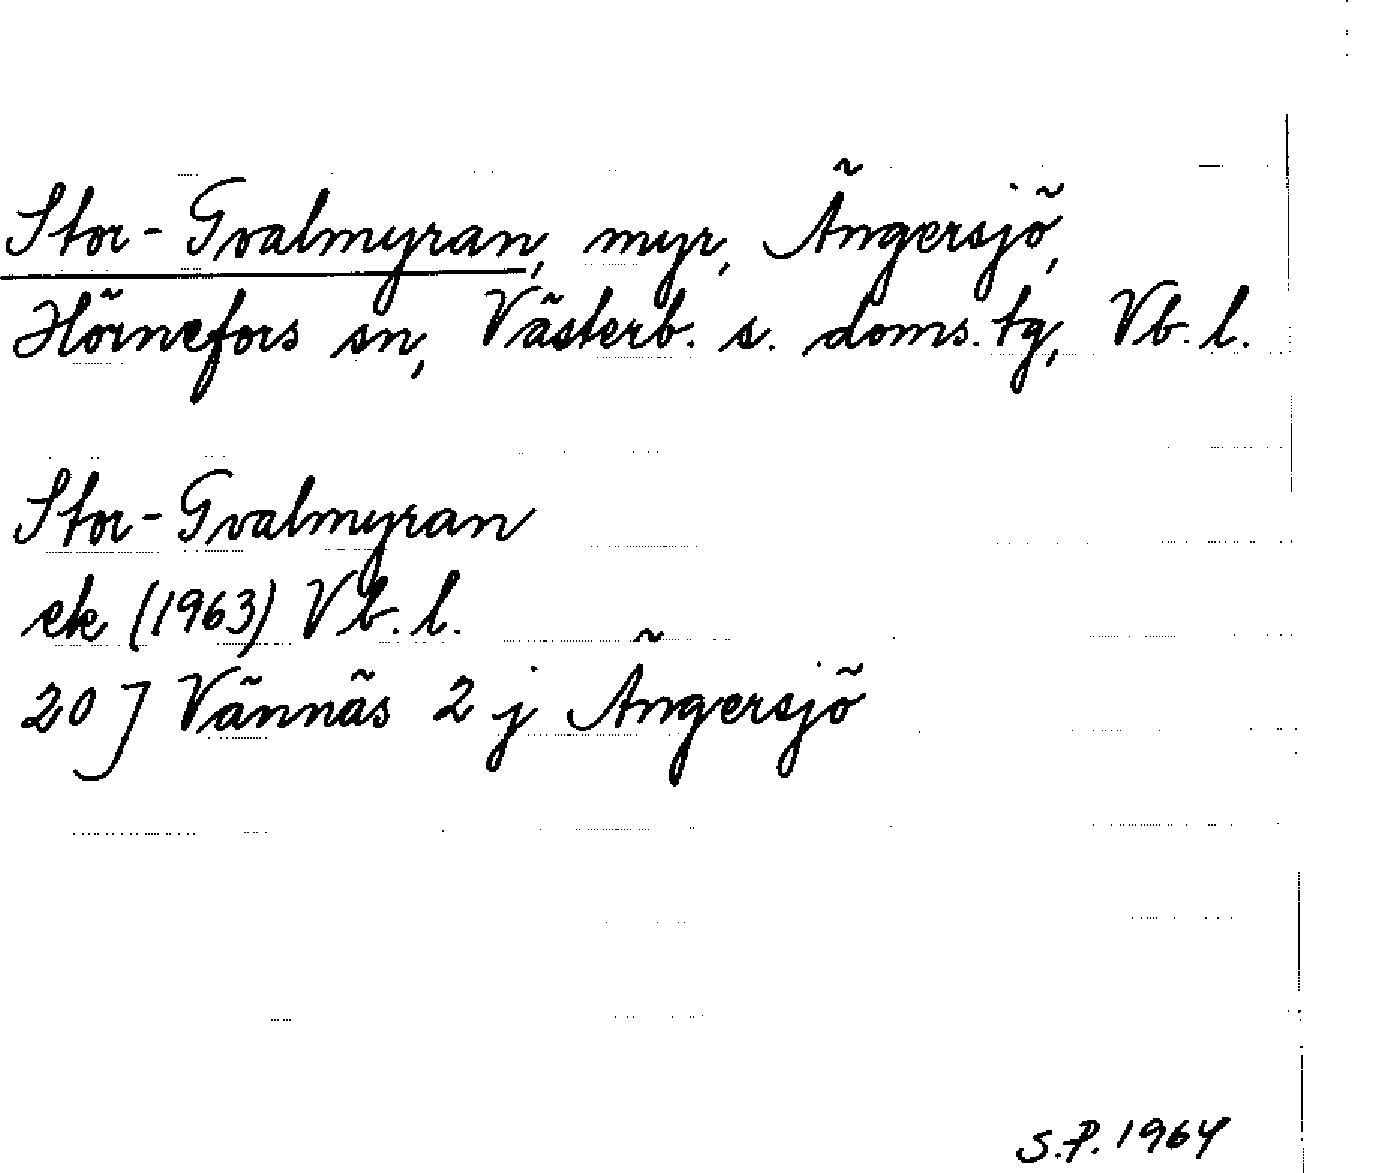 Stor-Gvalmyran, myr, Ängersjö,
Hörnefors sn, Västerb. s. doms. tg, Vb. l.
Stor-Gvalmyran
ek (1963) Vb. l.
20 J Vännäs 2 j Ängersjö
S.P. 1964